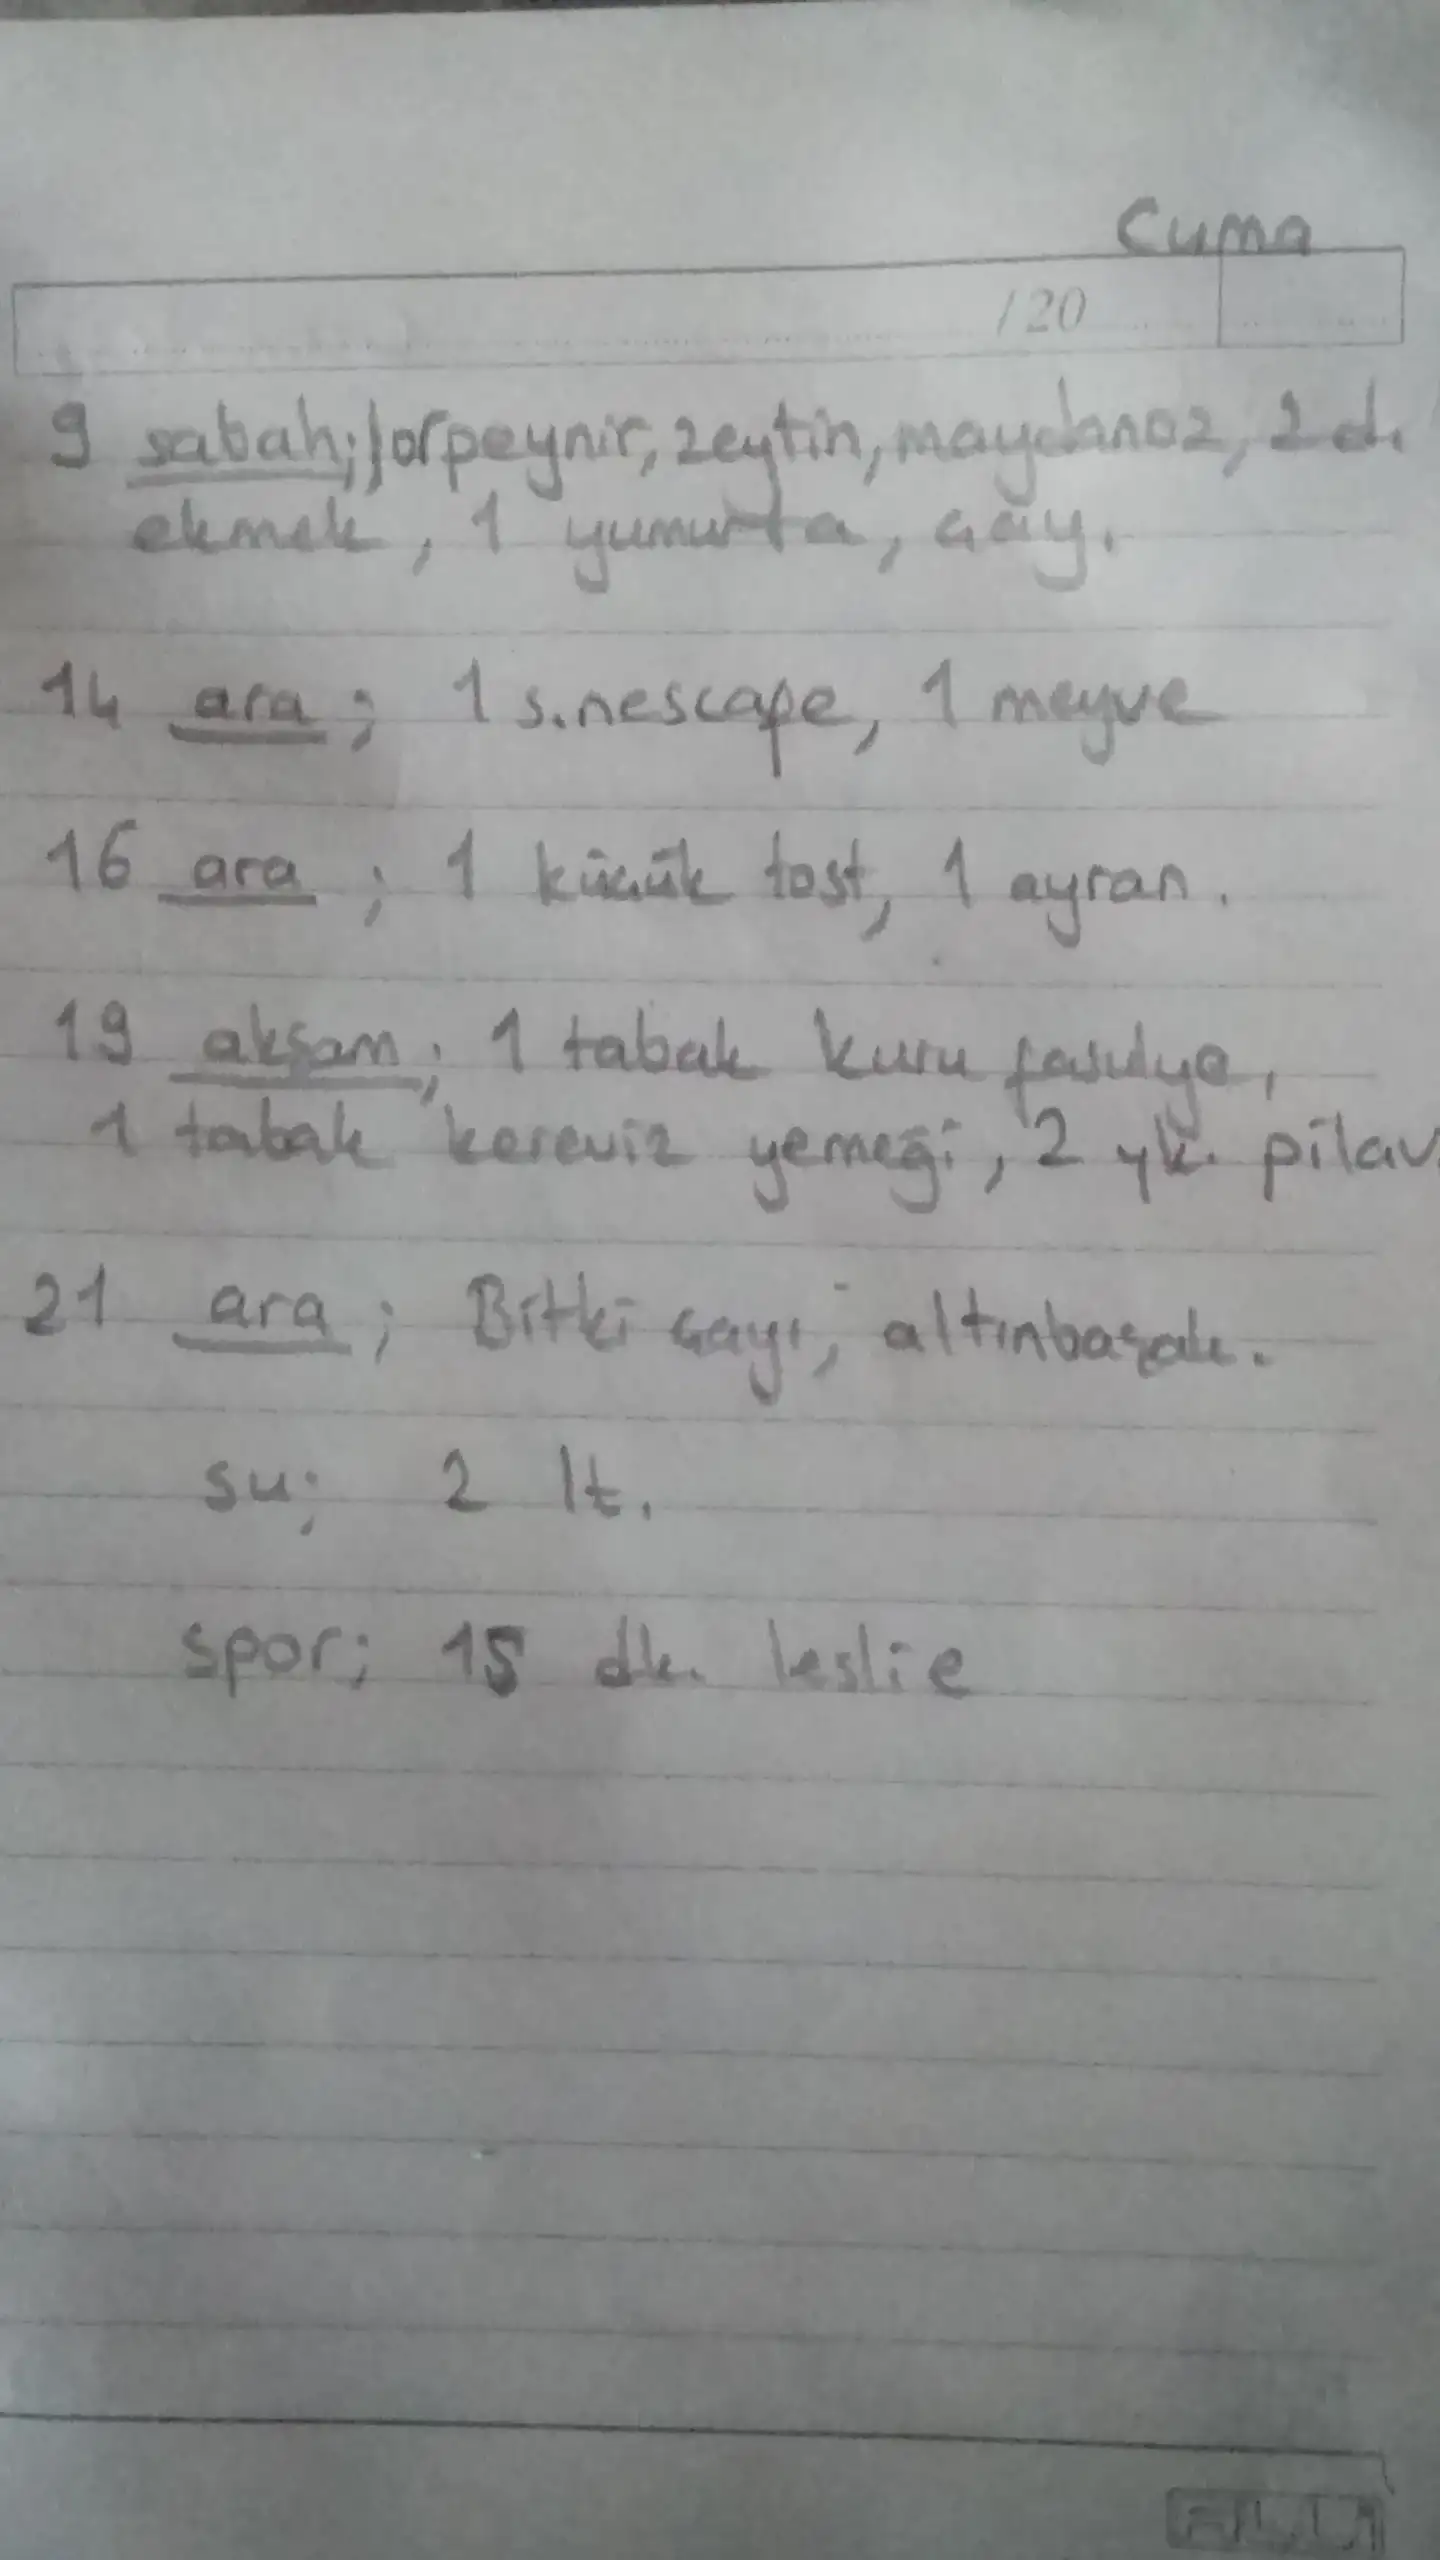 Cuma
/20
9 sabah; lorpeynir, zeytin, maydanoz, 2 d.
ekmek, 1 yumurta, çay.
14 ara; 1 s.nescape, 1 meyve
16 ara; 1 küçük tost, 1 ayran.
19 akşam; 1 tabak kuru fasulye,
1 tabak kereviz yemeği, 2 yk. pilav.
21 ara; Bitki çayı, altınbaşak.
su; 2 lt.
spor; 15 dk. leslie